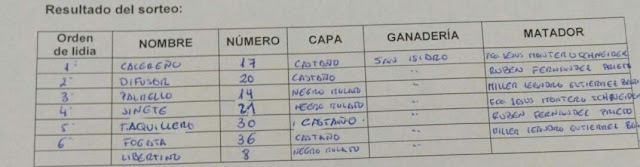 Resultado del sorteo:
Orden de lidia NOMBRE NÚMERO CAPA GANADERÍA MATADOR
1º CALEREÑO 17 CASTAÑO SAN ISIDRO FCO JESUS MONTERO SCHNEIDER
2º DIFUSOR 20 CASTAÑO " RUBEN FERNANDEZ PRIETO
3º 14 NEGRO MULATO " MILLER LEANDRO GUTIERREZ
4º JINETE 21 NEGRO MULATO " FCO JESUS MONTERO SCHNEIDER
5º TAQUILLERO 30 CASTAÑO " RUBEN FERNANDEZ PRIETO
6º FOGATA 36 CASTAÑO " MILLER LEANDRO GUTIERREZ
LIBERTINO 8 NEGRO MULATO